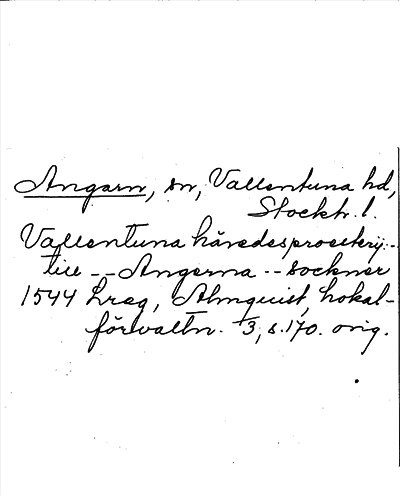 Angarn, sn, Vallentuna hd,
Stockh. l.
Vallentuna häredsprosterij --
till -- Angerna -- sockner
1544 Lreg, Almquist, Lokal-
förvaltn. 1/3, s. 170. orig.